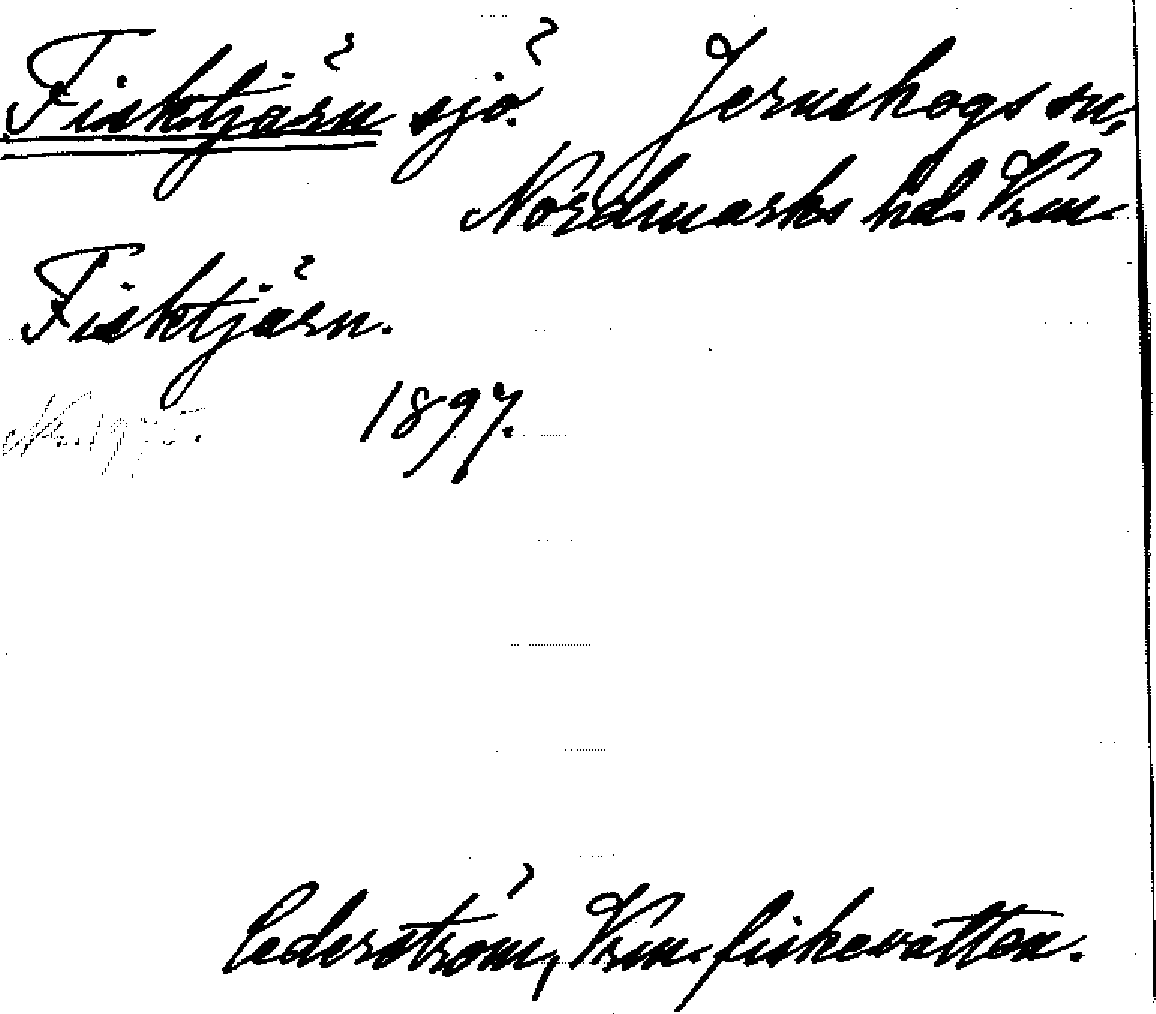 Fisktjärn sjö. Jernskogs sn,
Nordmarks hd. Vrm.
Fisktjärn.
1897.
Nr. 1975.
Cederström, Vrm. fiskevatten.